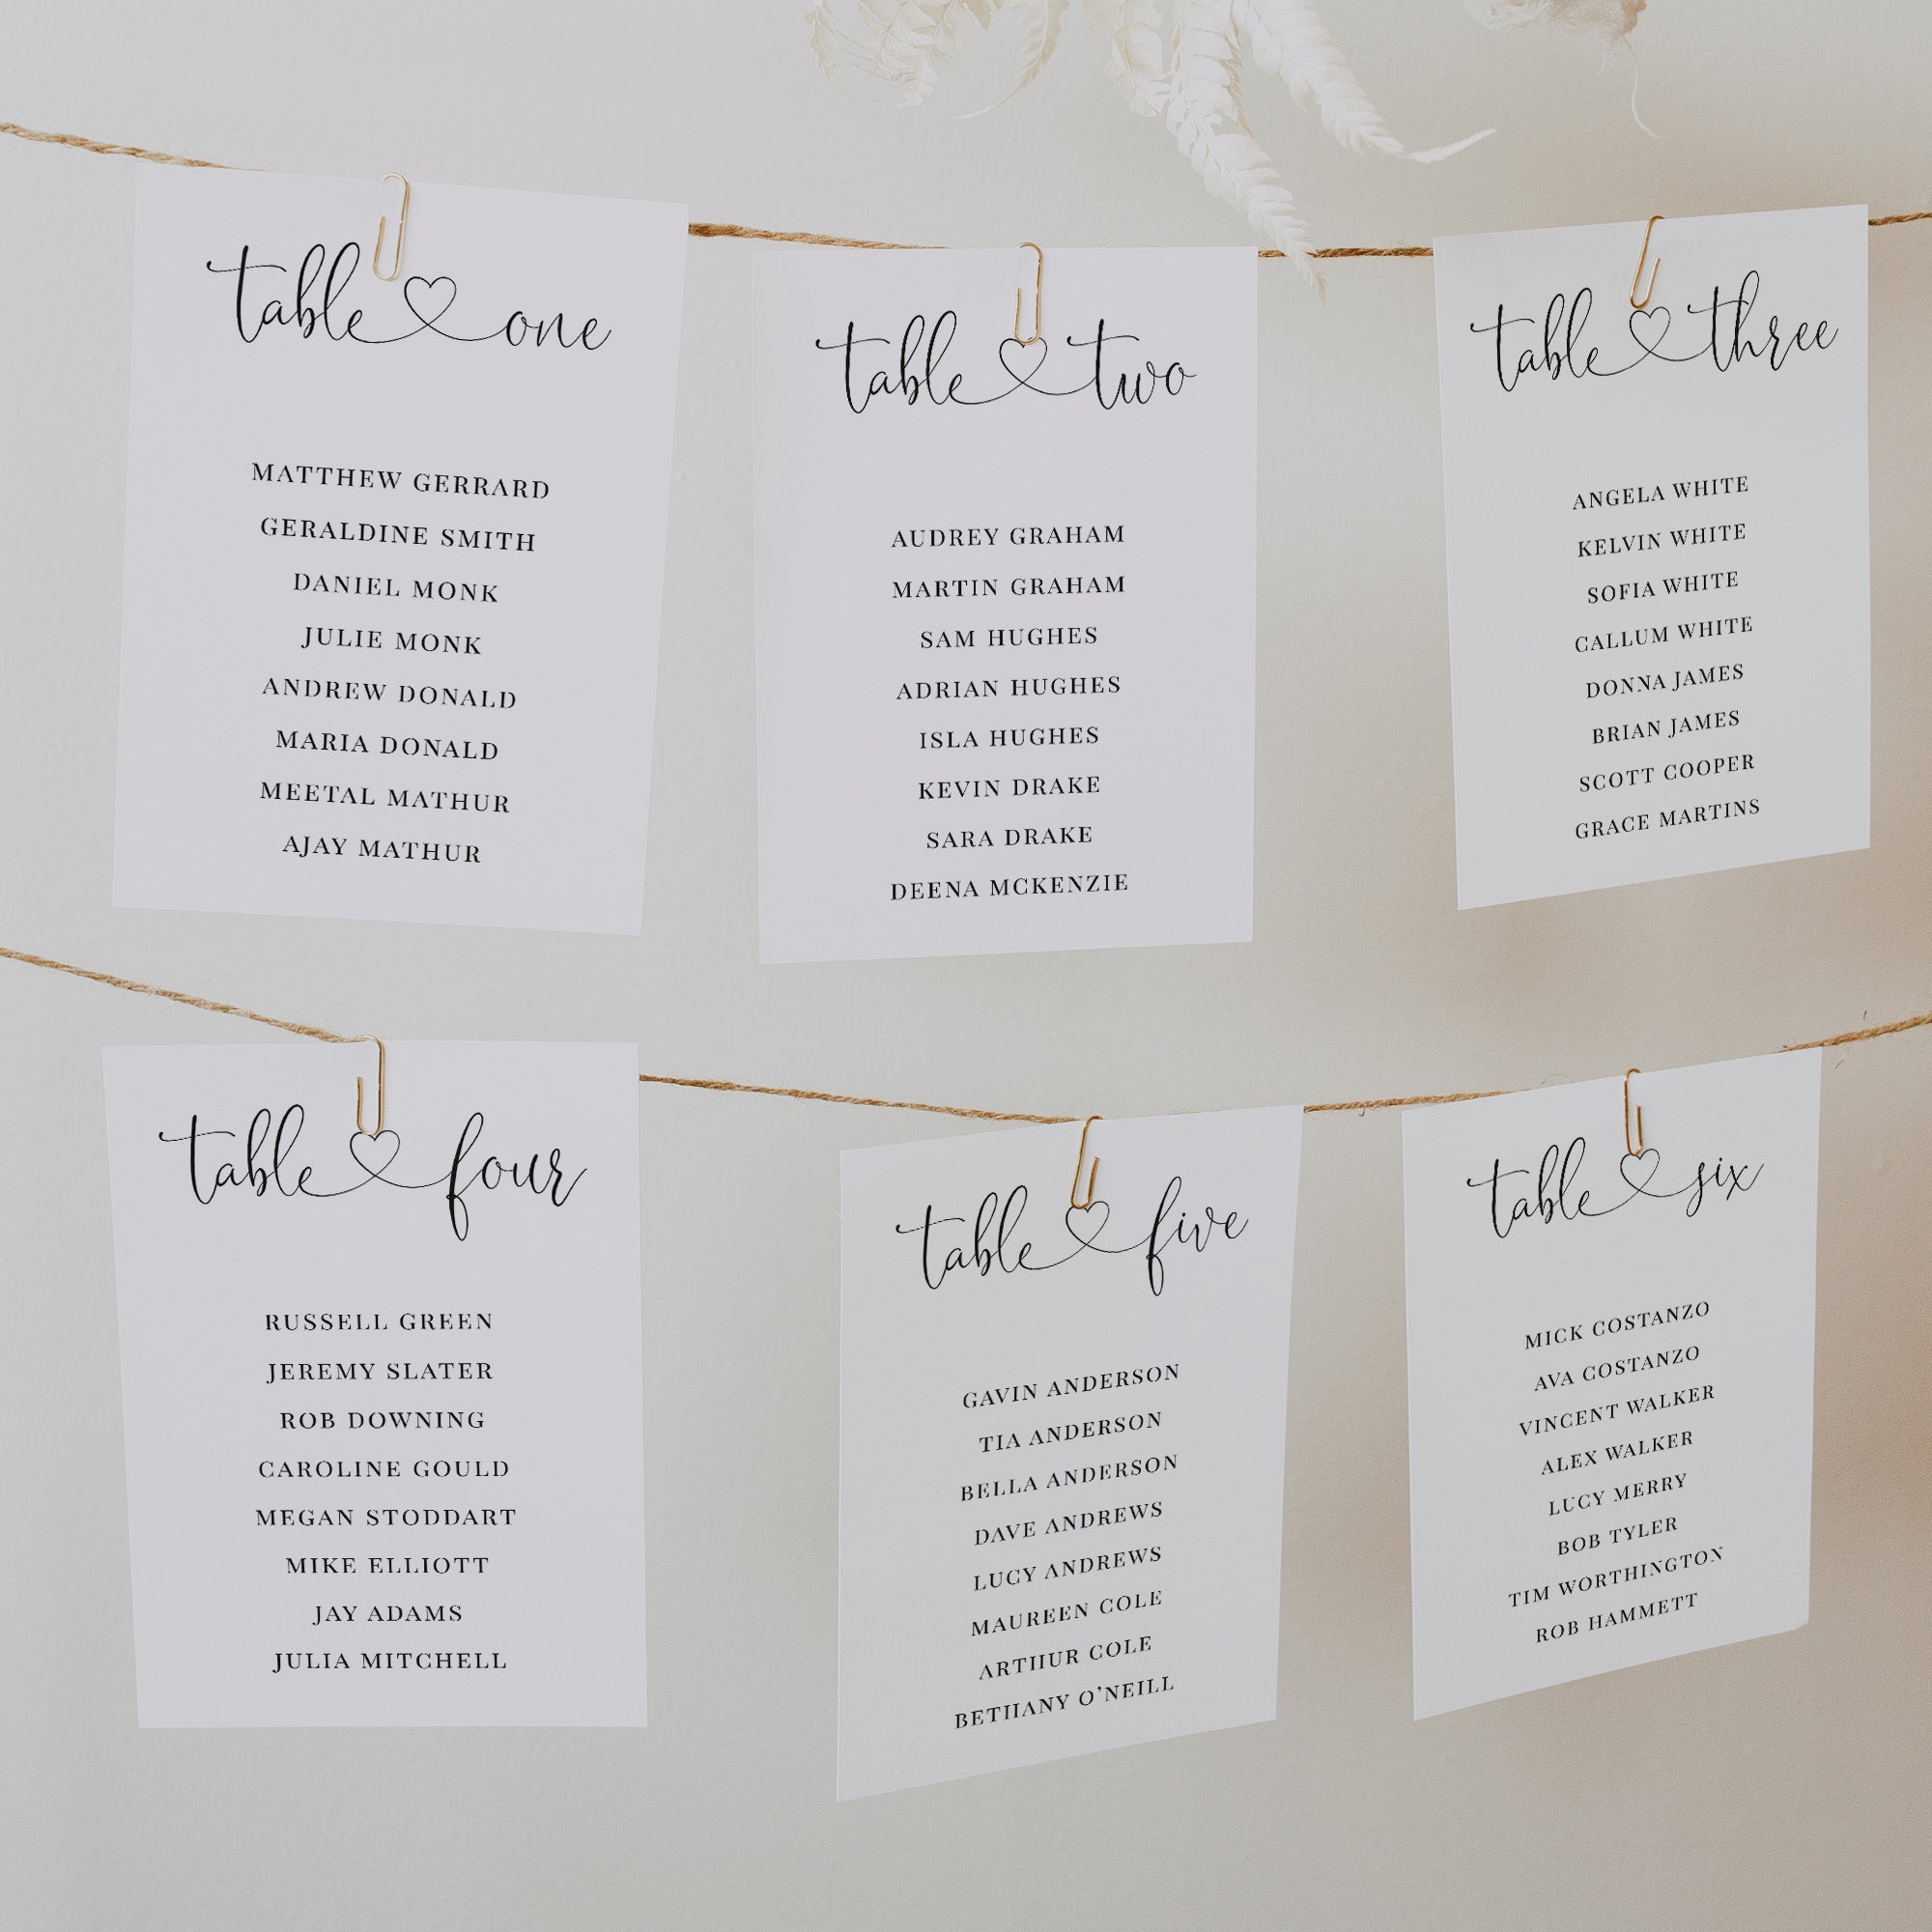 table one
MATTHEW GERRARD
GERALDINE SMITH
DANIEL MONK
JULIE MONK
ANDREW DONALD
MARIA DONALD
MEETAL MATHUR
AJAY MATHUR
table two
AUDREY GRAHAM
MARTIN GRAHAM
SAM HUGHES
ADRIAN HUGHES
ISLA HUGHES
KEVIN DRAKE
SARA DRAKE
DEENA MCKENZIE
table three
ANGELA WHITE
KELVIN WHITE
SOFIA WHITE
CALLUM WHITE
DONNA JAMES
BRIAN JAMES
SCOTT COOPER
GRACE MARTINS
table four
RUSSELL GREEN
JEREMY SLATER
ROB DOWNING
CAROLINE GOULD
MEGAN STODDART
MIKE ELLIOTT
JAY ADAMS
JULIA MITCHELL
table five
GAVIN ANDERSON
TIA ANDERSON
BELLA ANDERSON
DAVE ANDREWS
LUCY ANDREWS
MAUREEN COLE
ARTHUR COLE
BETHANY O'NEILL
table six
MICK COSTANZO
AVA COSTANZO
VINCENT WALKER
ALEX WALKER
LUCY MERRY
BOB TYLER
TIM WORTHINGTON
ROB HAMMETT